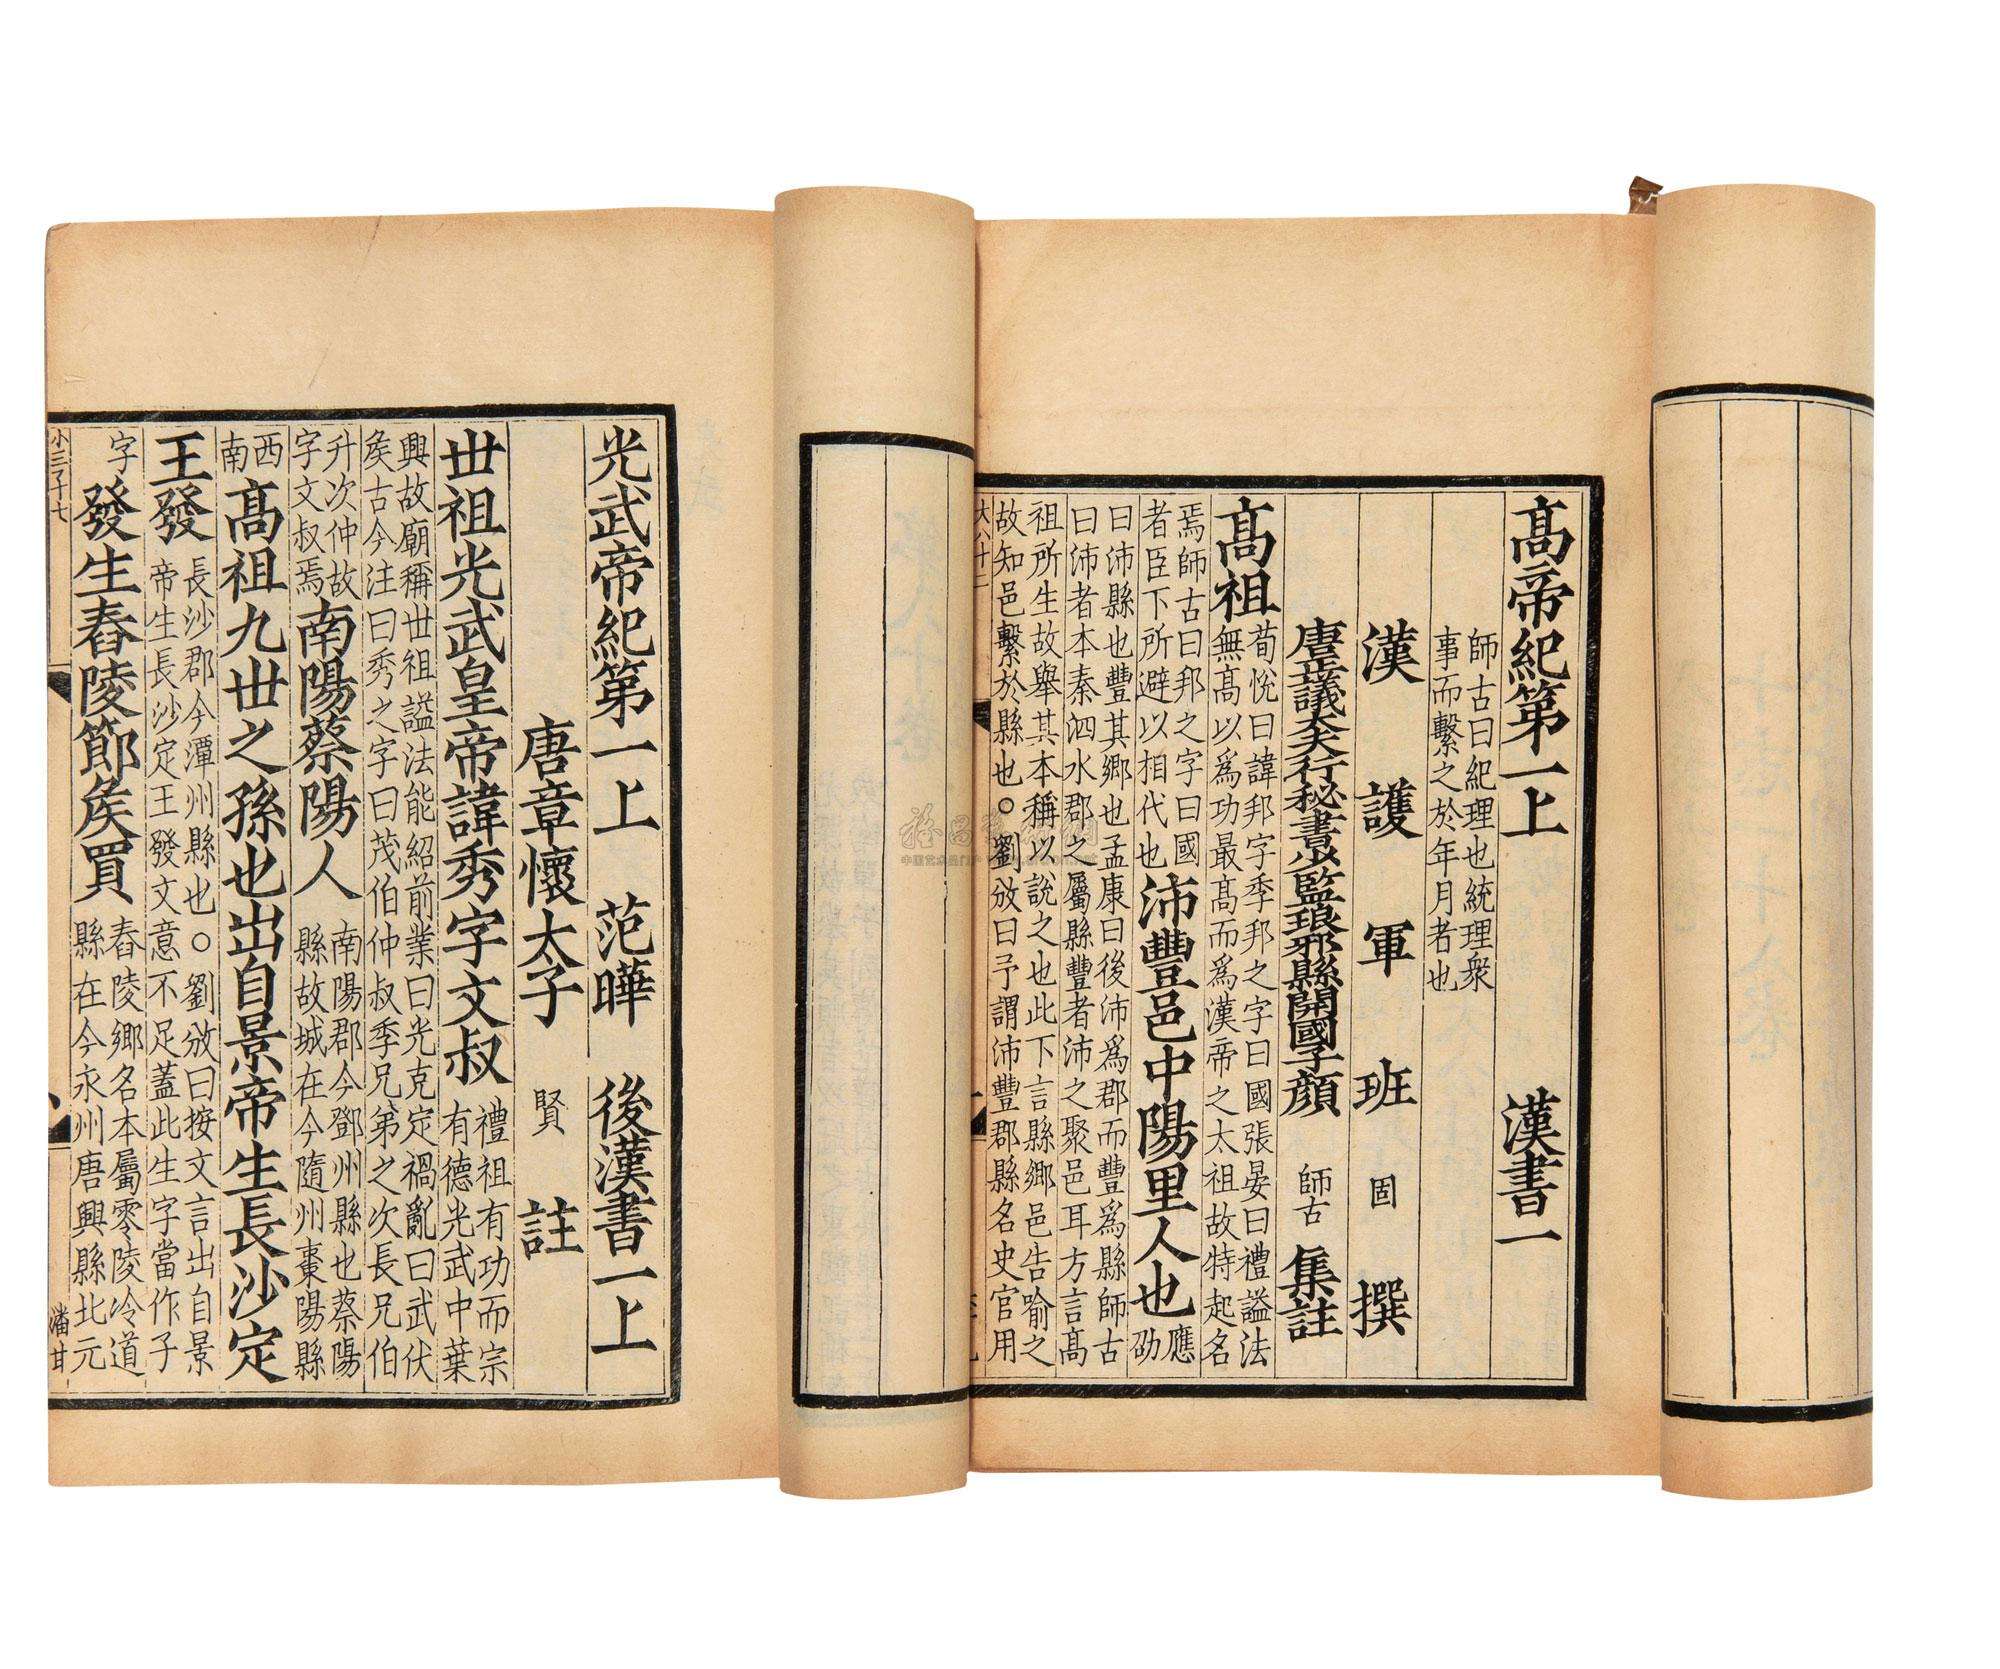 高帝紀第一上 漢書一
師古曰紀理也統理衆
事而繫之於年月者也
漢護軍班固撰
唐正議大夫行秘書少監琅邪縣開國子顔師古集註
高祖 荀悅曰諱邦字季邦之字曰國張晏曰禮謚法
無高以爲功最高而爲漢帝之太祖故特起名
焉師古曰邦之字曰國
者臣下所避以相代也 沛豐邑中陽里人也 應
劭
曰沛縣也豐其鄉也孟康曰後沛爲郡而豐爲縣師古
曰沛者本秦泗水郡之屬縣豐者沛之聚邑耳方言高
祖所生故舉其本稱以說之也此下言縣鄉邑告喻之
故知邑繫於縣也○劉攽曰予謂沛豐郡縣名史官用
光武帝紀第一上 范曄 後漢書一上
唐章懷太子賢註
世祖光武皇帝諱秀字文叔 禮祖有功而宗
有德光武中葉
興故廟稱世祖謚法能紹前業曰光克定禍亂曰武伏
矦古今注曰秀之字曰茂伯仲叔季兄弟之次長兄伯
升次仲故
字文叔焉 南陽蔡陽人 南陽郡今鄧州縣也蔡陽
縣故城在今隨州棗陽縣
西
南 高祖九世之孫也出自景帝生長沙定
王發 長沙郡今潭州縣也○劉攽曰按文言出自景
帝生長沙定王發文意不足蓋此生字當作子
字 發生舂陵節矦買 舂陵鄉名本屬零陵泠道
縣在今永州唐興縣北元
小三子十七
潘甘